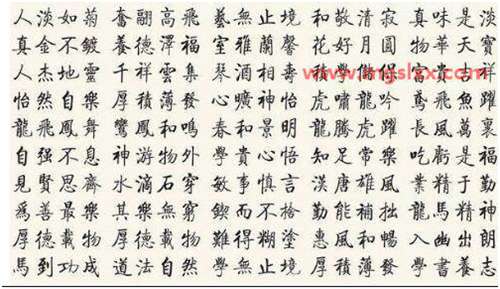 人淡如菊 奮翮高飛 藝無止境 和敬清寂 真味是淡
真金不鍍 養德澤福 室雅蘭馨 花好月圓 物華天寶
人杰地靈 千祥雲集 富貴吉祥
怡然自樂 厚積薄發 曠神怡 虎嘯龍吟 鳶飛魚躍
龍飛鳳舞 鸞鳳和鳴 春和景明 龍騰虎躍 長風萬裏
自强不息 神游物外 學貴心悟 知足常樂 吃虧是福
見賢思齊 水滴石穿 敏事慎言 漢唐雄風 業精于勤
爲善最樂 其樂無窮 鍥而不捨 勤能補拙 龍馬精神
厚德載物 厚德載物 難得糊塗 惠風和暢 入幽出朗
馬到功成 道法自然 學無止境 厚積薄發 學書養志